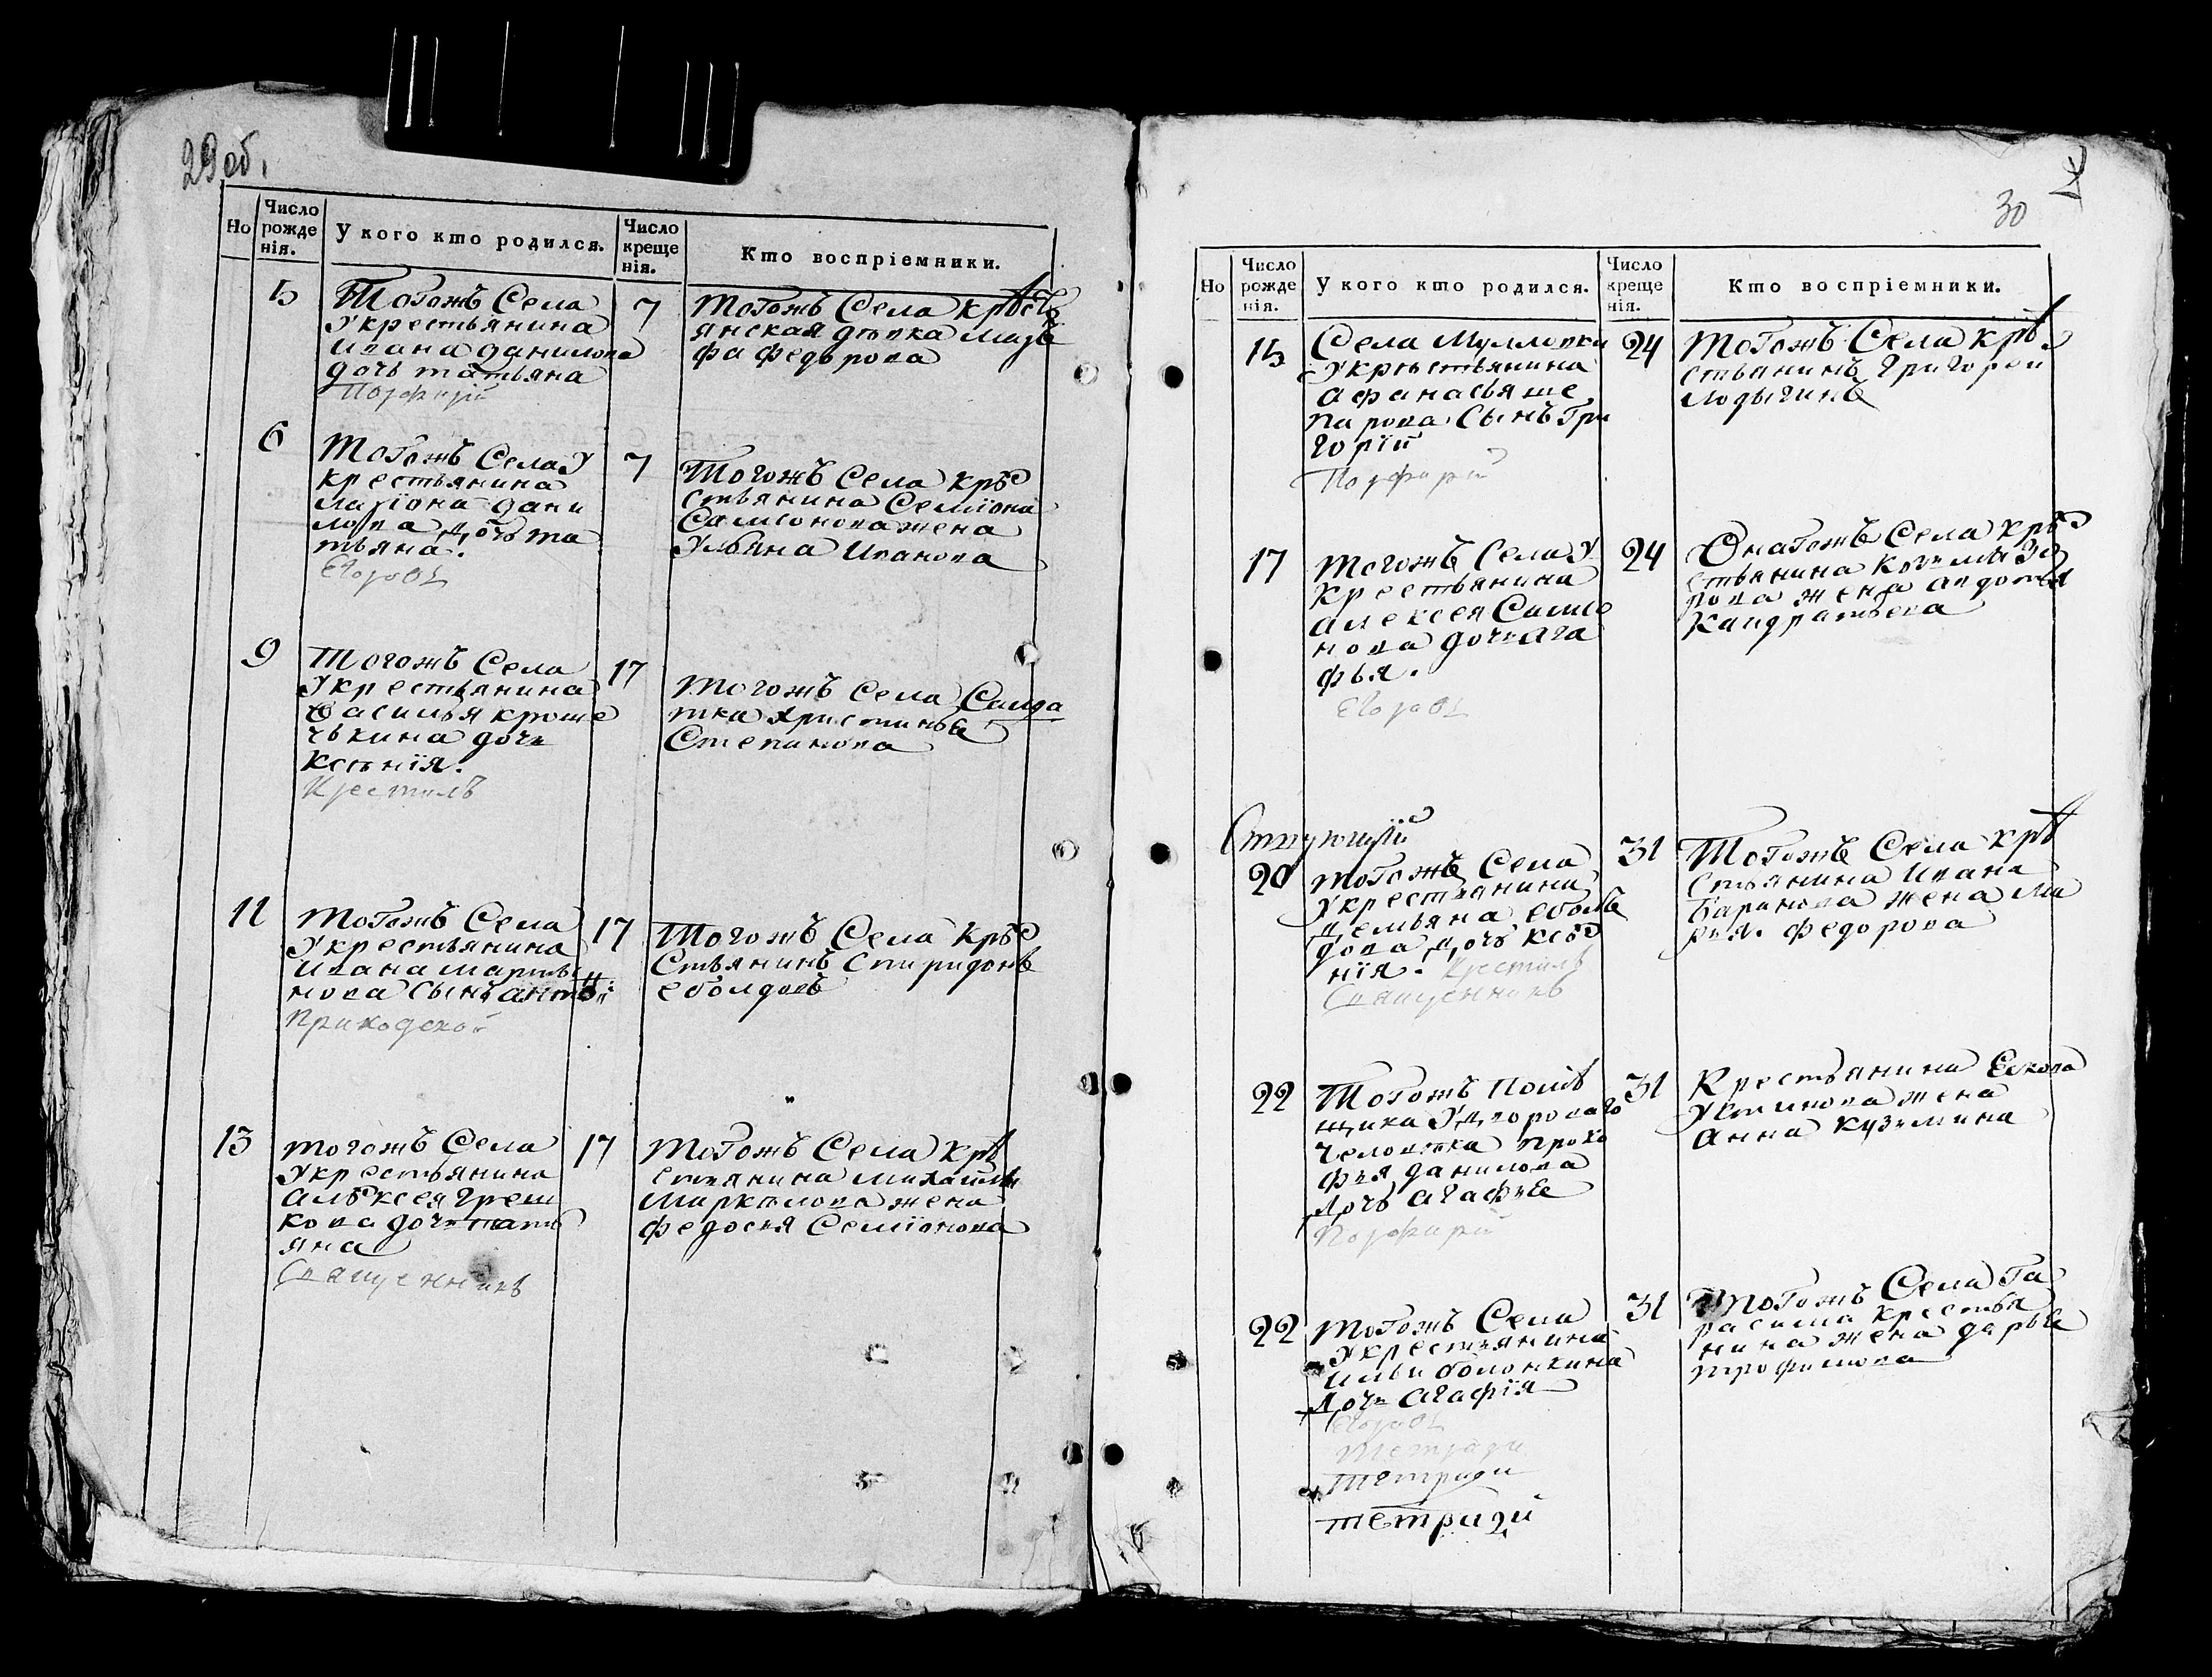 29 об.
Но
Число рожденія.
У кого кто родился.
Число крещенія.
Кто воспріемники.
5
Тогожъ Села
Укрестьянина
Ивана данилова
дочь татьяна
Порфирій
7
Тогожъ Села крѣсть
янская дѣвка
фа федорова
6
Тогожъ Села У
крестьянина
лариона дани
лова дочь та
тьяна.
Егоровъ
7
Тогожъ Села крѣ
стьянина Семіона
Самсонова жена
Ульяна Иванова
9
Тогожъ Села
Укрестьянина
василья кроше
чькина дочь
Ксѣнія.
Крестилъ
17
Тогожъ Села Салда
тка христинья
Степанова
11
Тогожъ Села
Укрестьянина
Ивана марты
нова Сынъ антонъ
Приходской
17
Тогожъ Села крѣ
Стьянинъ Спиридонъ
еболдовъ
13
тогожъ Села
Укрестьянина
Алѣксея Греш
кова дочь тать
яна
Священникъ
17
Тогожъ Села крѣ
стьянина михайлы
Маркѣлова жена
федосья Семіонова
30
Но
Число рожденія.
У кого кто родился.
Число крещенія.
Кто воспріемники.
15
Села Мулловки
Укрѣстьянина
афанасья ше
парова Сынъ Гри
горій
Порфирій
24
Тогожъ Села крѣ
стьянинъ Григореи
Лодыгинъ
17
Тогожъ Села У
крестьянина
алексея Самсо
нова дочь Ага
фья.
Егоровъ
24
Онагожъ Села крѣ
стьянина
рова жена авдотья
Кандратьева
20
тогожъ Села
Укрестьянина
демьяна еболь
дова дочь ксѣ
нія. Крестилъ
Священникъ
31
Тогожъ Села крѣ
Стьянина Ивана
Баранова жена Ма
рья федорова
22
Тогожъ помѣ
щика Удворова́го
человѣка проко
фья данилова
Дочь агафье
Порфирій
31
Крестьянина
Устинова жена
Анна кузьмина
22
Тогожъ Села
Укрестьянина
ильи болонкина
Дочь Агафія
Егоровъ
Тетради
Тетради
тетради
31
Тогожъ Села Га
расима крестья
нина жена дарья
трофимова